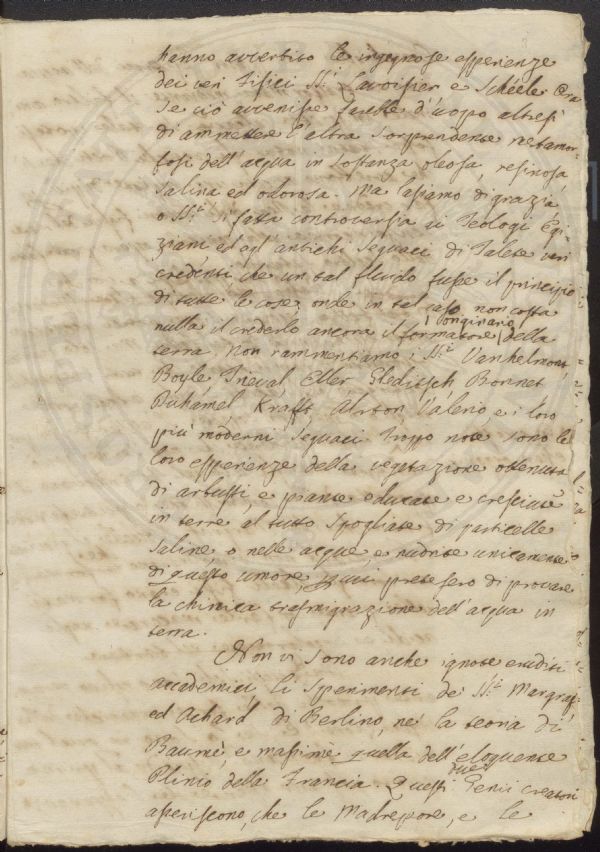 hanno avvertito le ingegnose esperienze
dei veri Fisici SS.i Lavoisier e Schéele
Se ciò avvenisse sarebbe d'uopo altresì
di ammettere l'altra sorprendente metamor-
fosi dell'acqua in sostanza oleosa, resinosa,
salina ed odorosa. Ma lasiamo di grazia
o SS.i sì fatta controversia ai Teologi Egi-
ziani ed agl'antichi seguaci di Talete veri
credenti che un tal fluido fusse il principio
di tutte le cose, onde in tal caso non costa
nulla il crederlo ancora il formatore originario della
terra, non rammentiamo i SS.i Vanhelmont,
Boyle Eller Gleditsch Bonnet
Duhamel Krafft Alston Valerio e i loro
più moderni seguaci troppo note sono le
loro esperienze della vegetazione ottenuta
di arbusti, e piante educate e cresciute
in terre al tutto spogliate di particelle
saline, o nelle acque, e nudrite unicamente
di questo umore, pretesero di provare
la chimica trasmigrazione dell'acqua in
terra.
Non vi sono anche ignote eruditi
accademici li sperimenti de SS.i Margraf
ed Achard di Berlino, ne la teoria di
Baumè, e massime quella dell'eloquente
Plinio della Francia. Questi due Genii creatori
asseriscono, che le Madrepore, e le